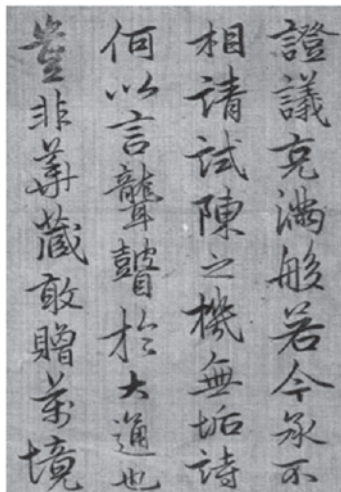 證議充滿般若今承不
相請試陳之機無垢詩
何以言聾瞽於大通也
豈非華藏敢贈萬境